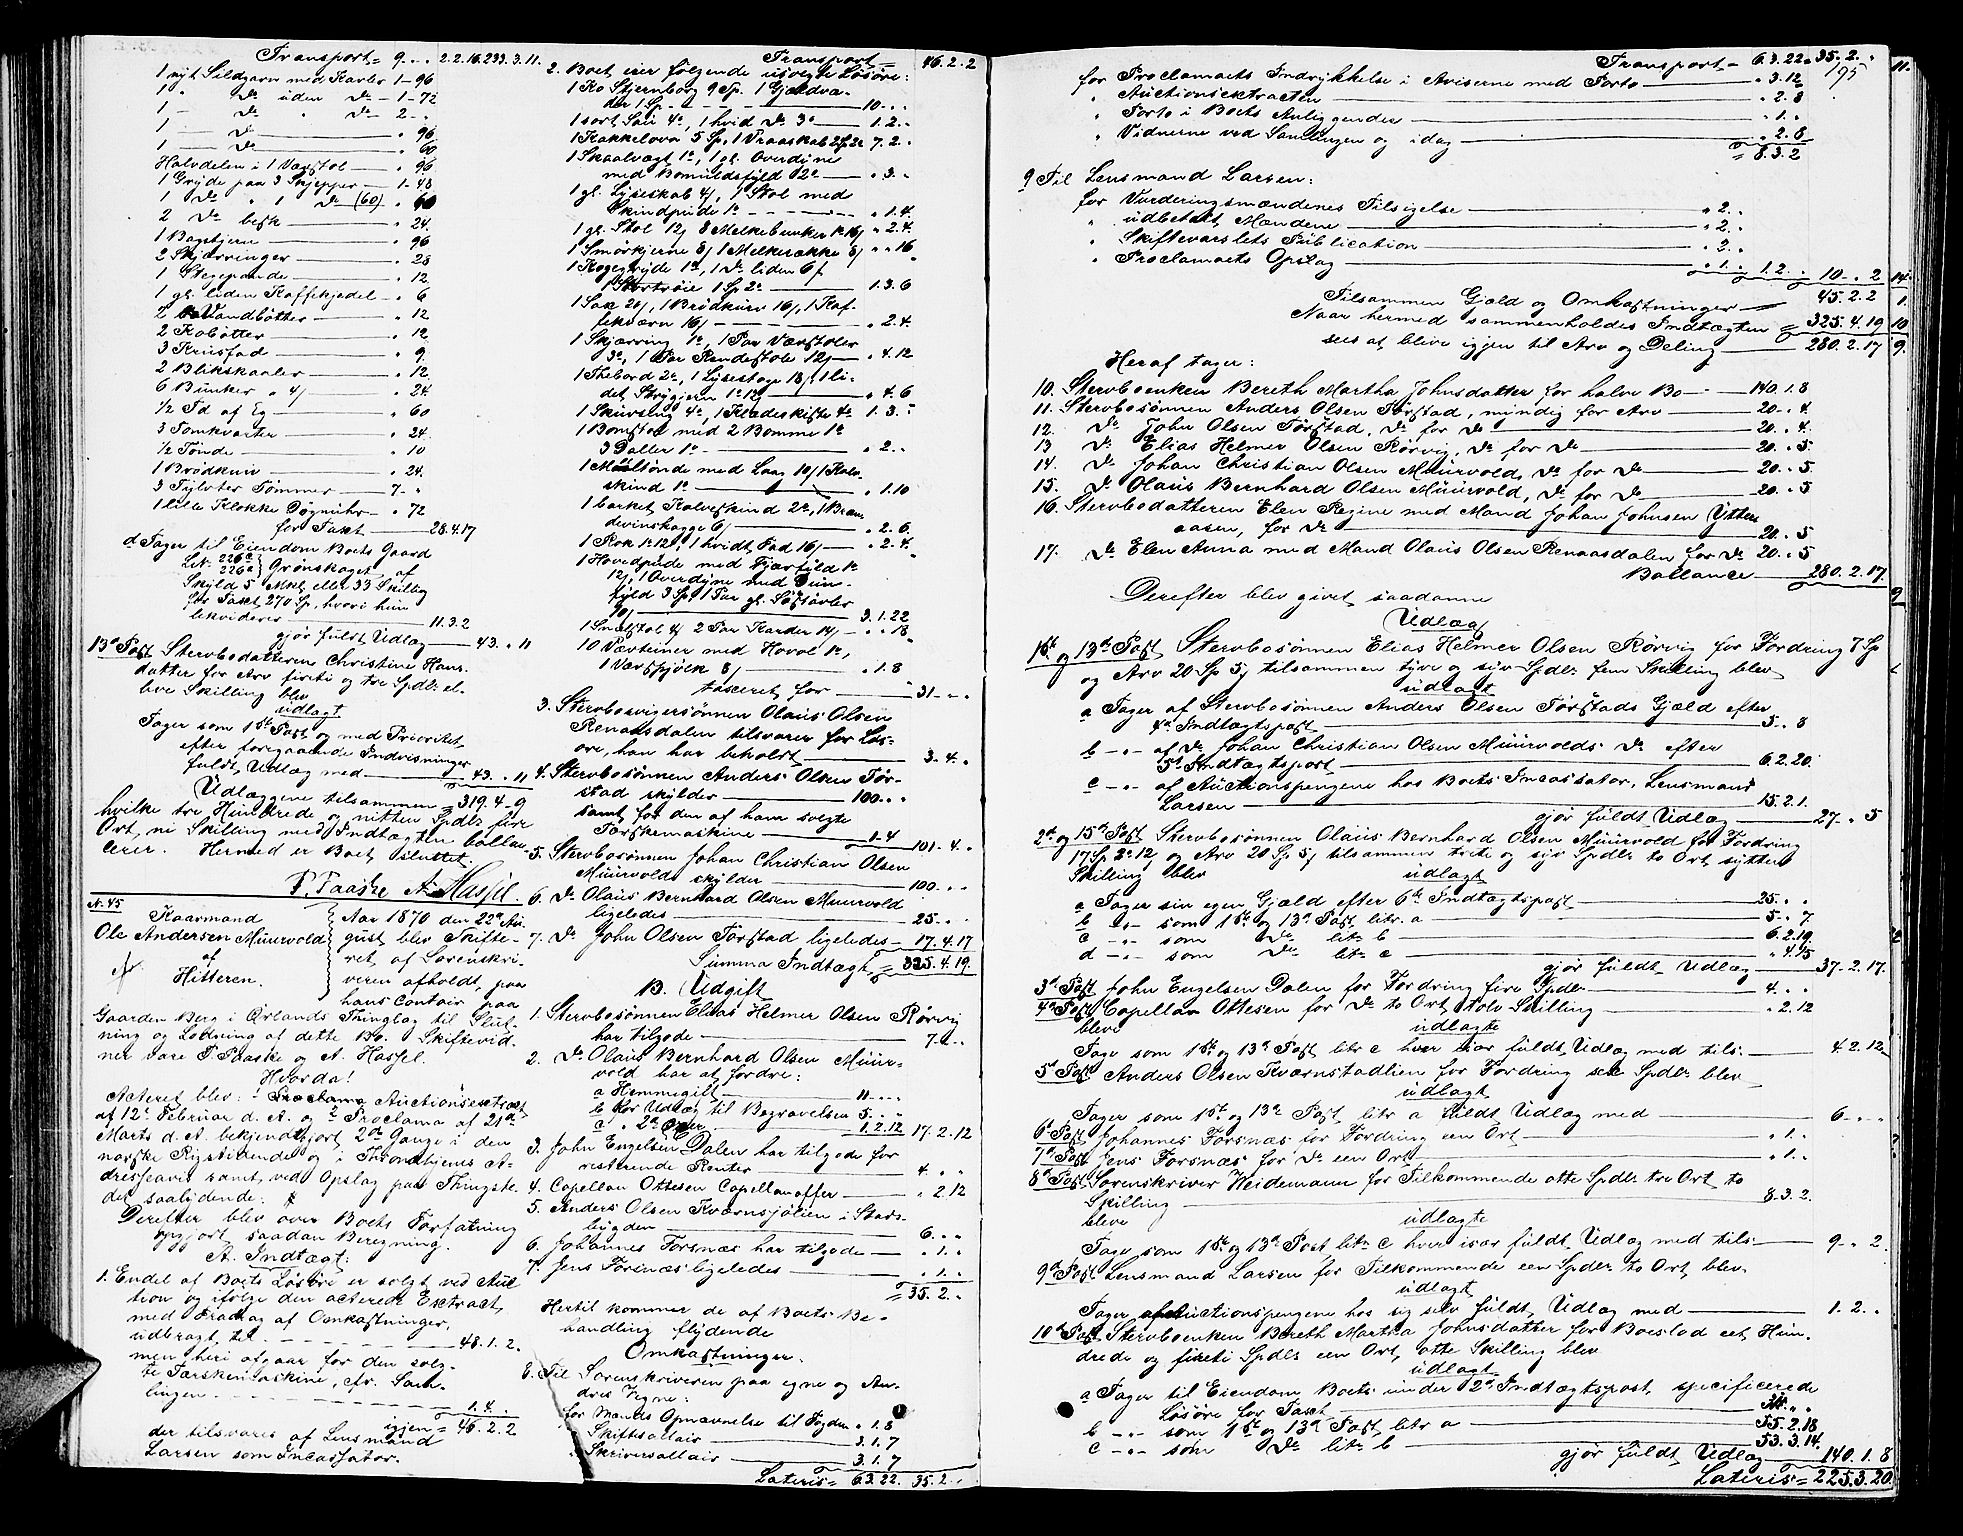 Transport = 9. „ „ 2.2.16. 233.3.11.
1 nyt Sildgarn med Kavler 1 - 96
1 „ Do uden Do - 1 - 72
1 - Do „ Do - 2 „
1 - Do - „ 96
1 - Do - „ 60
Halvdelen i 1 Vævstol - „ 96
1 Gryde paa 3 Skjepper - 1 - 48
1 Do „ 1 Do (60) „ 60
2 Do besk - „ 24
1 Bagstjerne - „ 96
2 Skjærringer - „ 28
1 Stegepande - „ 12
1 gl. liden Kaffekjedel - „ 6
2 Vandbøtter - „ 12
2 Kobøtter - „ 12
3 Krusfad - „ 9
2 Blikskaaler - „ 12
6 Bunker „ 4/ - „ 24
1/2 Td af Eg - „ 60
3 Tomkvarter - „ 24
1/2 Tønde - „ 10
1 Brødkurv - „ 24
3 Tylvter Tømmer - 7 - „
1 lille Klokke Døgnuhr - „ 72
for Taxt - 28.4.17
d Tager til Eiendom Boets Gaard
LNr. 226c 226a } Grønskaget af
Skyld 5 Mkl. eller 33 Skilling
for Taxt 270 Sp, hvori hun
likviderer - 11.3.2
gjør fuldt Udlæg - 43. „ 11
13de Post Stervbodatteren Christine Hans-
datter for Arv firti og tre Spdlr el-
leve Skilling blev
udlagt
Tager som 1ste Post og med Prioritet
efter foregaaende Indvisninger
fuldt Udlæg med - 43. „ 11
Udlæggene tilsammen = 319.4.9
hvilke tre Hundrede og nitten Spdlr fire
Ort, ni Skilling med Indtægten ballan-
cerer. Hermed er Boet sluttet.
P. Paaske A. Hassel.
N. 45
Kaarmand
Ole Andersen Muurvold
af
Hitteren.
Aar 1870 den 22de Au-
gust blev Skifte-
ret af Sorenskri-
veren afholdt, paa
hans Contoir paa
Gaarden Berg i Ørlands Thinglag til Slut-
ning og Lodning af dette Bo. Skiftevid-
ner vare P. Paaske og A. Hassel.
Hvorda!
Acteret blev: 1 Auctionsextract
af 12te Februar d. A. og 2 Proclama af 21de
Marts d. A. bekjendtgjort 2de Gange i den
norske Rigstidende og i Throndhjems A-
dresseavis samt ved Opslag paa Thingste-
det saalydende:
Derefter blev over Boets Forfatning
opgjort saadan Beregning.
A. Indtægt:
1. Endel af Boets Løsøre er solgt ved Auc-
tion og ifølge den acterede Extract,
med Fradrag af Omkostninger,
udbragt til - 48.1.2.
men heri afgaar for den solg-
te Tærskemaskine, cfr. Sam-
lingen - 1.4. „
igjen = 46.2.2
der tilsvares af Lensmand
Larsen som Incassator.
Transport = 46.2.2
2. Boet eier følgende usolgte Løsøre:
1 Ko Stjernborg 9 Sp. 1 Gjeldva-
der 1 Sp. - 10. „ „
1 sort Sau 4o, 1 hvid Do 3o - 1.2. „
1 Kakkelovn 5 Sp, 1 Vraaskab 2 Sp 2o 7.2. „
1 Skaalvægt 1o, 1 gl. Overdyne
med Bomuldsfyld 2o - „ 3. „
1 gl. Lyseskab 4/, 1 Stol med
Skindpude 1o - „ 1.4.
1 gl. Stol 12/ 8 Melkebunker 1o 16/ „ 2.4.
1 Smørkjerne 8/ 1 Melkerække 8/ „ „ 16
1 Kogegryde 1o, 1 Do liden 6/
1 Skortrøie 1 Sp 2o - 1.3.6
1 Sax 20/, 1 Brødkurv 16/, 1 Kaf-
fekværn 16/ - „ 2.4.
1 Skjærring 1o, 1 Par Vævstoler
3o, 1 Par Rendestole 12/ - „ 4.12
1 Thebord 2o, 1 Lysestage 18/, 1 li-
det Strygjern 1o 12/ - „ 4.6
1 Skuvslag 4o, 1 Klædeskiste 4o 1.3. „
1 Bomstol med 2 Bomme 1o
3 Daller 1o - „ 2. „
1 Meeltønde med Laag 10/ 1 Kalv-
skind 1o - „ 1.10
1 barket Kalveskind 2o, 1 Bræn-
devinskagge 6/ - „ 2.6.
1 Rok 1o 12, 1 hvidt Fad 16/ - „ 2.4.
1 Hovedpude med Fjærfyld 1o
12/, 1 Overdyne med Duun-
fyld 3 Sp, 1 Par gl. Søstøvler
20/ - 3.1.22
1 Snelstol 4/ 2 Par Karder 14/ - „ „ 18
10 Vævteiner med Hovol 1o,
1 Vævspjølk 8/ - „ 1.8
taxeret for - 31. „ „
3. Stervbosvigersønnen Olaus Olsen
Renaasdalen tilsvarer for Løs-
øre, han har beholdt - 3.4. „
4. Stervbosønnen Anders Olsen Tør-
stad skylder - 100. „ „
samt for den af ham solgte
Tærskemaskine - 1.4
101.4. „
5. Stervbosønnen Johan Christian Olsen
Muurvold skylder - 100. „ „
6. Do Olaus Bernhard Olsen Muurvold
ligeledes - 25. „ „
7. Do John Olsen Tørstad ligeledes - 17.4.17
Summa Indtægt = 325.4.19.
B. Udgift
1. Stervbosønnen Elias Helmer Olsen Rørvig
har tilgode - 7. „ „
2. Do Olaus Bernhard Olsen Muur-
vold har at fordre:
a Hemmegift - 11. „ „
b For Udlæg til Begravelsen 5. „ „
c „ 2de Øxer - 1.2.12 17.2.12
3. John Engelsen Dalen har tilgode for
resterende Renter - 4. „ „
4. Capellan Ottesen Capellanoffer - „ 2.12
5. Anders Olsen Kværnsjølien i Stads-
bygden - 6. „ „
6. Johannes Forsnæs har tilgode - „ 1. „
7. Jens Forsnæs ligeledes - „ 1. „
= 35.2. „
Hertil kommer de af Boets Be-
handling flydende
Omkostninger.
8. Til Sorenskriveren paa egne og An-
dres Vegne:
for Mænds Opnævnelse til Fogden „ 1.8
„ Skiftesallair - 3.1.7
„ Skriversallair - 3.1.7
Lateris = 6.3.22. 35.2. „
Transport = 6.3.22. 35.2. „
195
11.
for Proclamaets Indrykkelse i Aviserne med Porto - „ 3.12
„ Auctionsextracten - „ 2.8
„ Porto i Boets Anliggender - „ 1. „
„ Vidnerne ved Samlingen og idag - „ 2.6
= 8.3.2
9 Til Lensmand Larsen:
for Vurderingsmændenes Tilsigelse - „ 2. „
„ udbetalt Mændene - „ 2. „
„ Skiftevarslets Publication - „ 2. „
„ Proclamaets Opslag - „ 1. „ 1.2. „ 10. „ 2 14
Tilsammen Gjæld og Omkostninger - 45.2.2 1.
Naar hermed sammenholdes Indtægten = 325.4.19 10
sees at blive igjen til Arv og Deling - 280.2.17 9.
Heraf tager:
10. Stervboenken Bereth Martha Johnsdatter for halve Bo - 140.1.8
11. Stervbosønnen Anders Olsen Tørstad, myndig for Arv - 20. „ 4.
12. Do John Olsen Tørstad, Do for Do - 20. „ 4.
13 Do Elias Helmer Olsen Rørvig, Do for Do - 20. „ 5
14. Do Johan Christian Olsen Muurvold, Do for Do - 20. „ 5
15. Do Olaus Bernhard Olsen Muurvold, Do for Do - 20. „ 5
16. Stervbodatteren Elen Regine med Mand Johan Johnsen Ytter-
aasen, for Do - 20. „ 5
17. Do Elen Anna med Mand Olaus Olsen Renaasdalen for Do 20. „ 5
Ballance - 280.2.17.
9
Derefter blev givet saadanne
Udlæg
1ste og 13de Post Stervbosønnen Elias Helmer Olsen Rørvig for Fordring 7 Sp
og Arv 20 Sp 5/ tilsammen tyve og syv Spdlr fem Skilling blev
udlagt
a Tager af Stervbosønnen Anders Olsen Tørstads Gjæld efter
4de Indtægtspost - 5. „ 8
b - „ - af Do Johan Christian Olsen Muurvolds Do efter
5te Indtægtspost - 6.2.20.
c - „ - af Auctionspengene hos Boets Incassator, Lensmand
Larsen - 15.2.1.
gjør fuldt Udlæg - 27. „ 5
2de og 15de Post Stervbosønnen Olaus Bernhard Olsen Muurvold for Fordring
17 Sp 2o 12/ og Arv 20 Sp 5/ tilsammen treti og syv Spdlr to Ort sytten
Skilling blev udlagt
a Tager sin egen Gjæld efter 6te Indtægtspost - 25. „ „
b - „ - som 1ste og 13de Post litr. a - 5. „ 7
c - „ - som Do litr b - 6.2.19
d - „ - som Do litr c - „ 4.15
gjør fuldt Udlæg - 37.2.17.
3de Post John Engelsen Dalen for Fordring fire Spdlr - 4. „ „
4de Post Capellan Ottesen for Do to Ort, tolv Skilling - „ 2.12
bleve udlagte
Tage som 1ste og 13de Post litr c hver især fuldt Udlæg med tils. - 4.2.12
5te Post Anders Olsen Kværnstadlien for Fordring sex Spdlr blev
udlagt
Tager som 1ste og 13de Post litr a fuldt Udlæg med - 6. „ „
6te Post Johannes Forsnæs for Fordring een Ort - „ 1. „
7de Post Jens Forsnæs for Do een Ort - „ 1. „
8de Post Sorenskriver Heidemann for Tilkommende otte Spdlr tre Ort to
Skilling - 8.3.2.
bleve udlagte
Tage som 1ste og 13de Post litr c hver især fuldt Udlæg med tils. - 9. „ 2.
9de Post Lensmand Larsen for Tilkommende een Spdlr to Ort blev
udlagt
Tager af Auctionspengene hos sig selv fuldt Udlæg med - 1.2. „
10de Post Stervboenken Bereth Martha Johnsdatter for Boeslod eet Hun-
drede og fireti Spdlr een Ort, otte Skilling blev
udlagt
a Tager til Eiendom Boets under 2de Indtægtspost specificerede
Løsøre for Taxt - 31. „ „
b - „ - som 1ste og 13de Post litr a - 55.2.18
c - „ - som Do litr b - 53.3.14.
gjør fuldt Udlæg - 140.1.8
Lateris = 225.3.20.